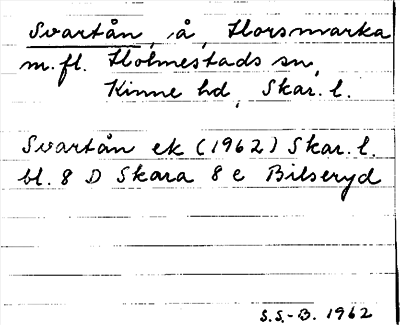 Svartån, å, Horsmarka
m.fl. Holmestads sn,
Kinne hd, Skar. l.
Svartån ek (1962) Skar. l.
bl. 8 D Skara 8 e Bilseryd
S.S.-B. 1962